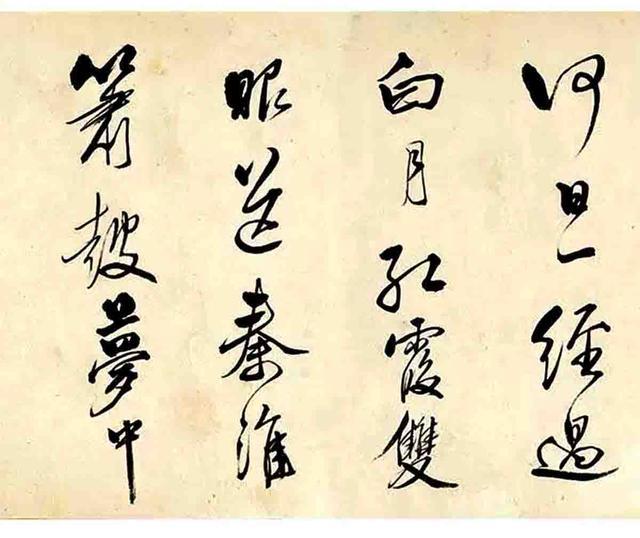 何日一經過
白月紅霞雙
眼秦淮
簫鼓夢中